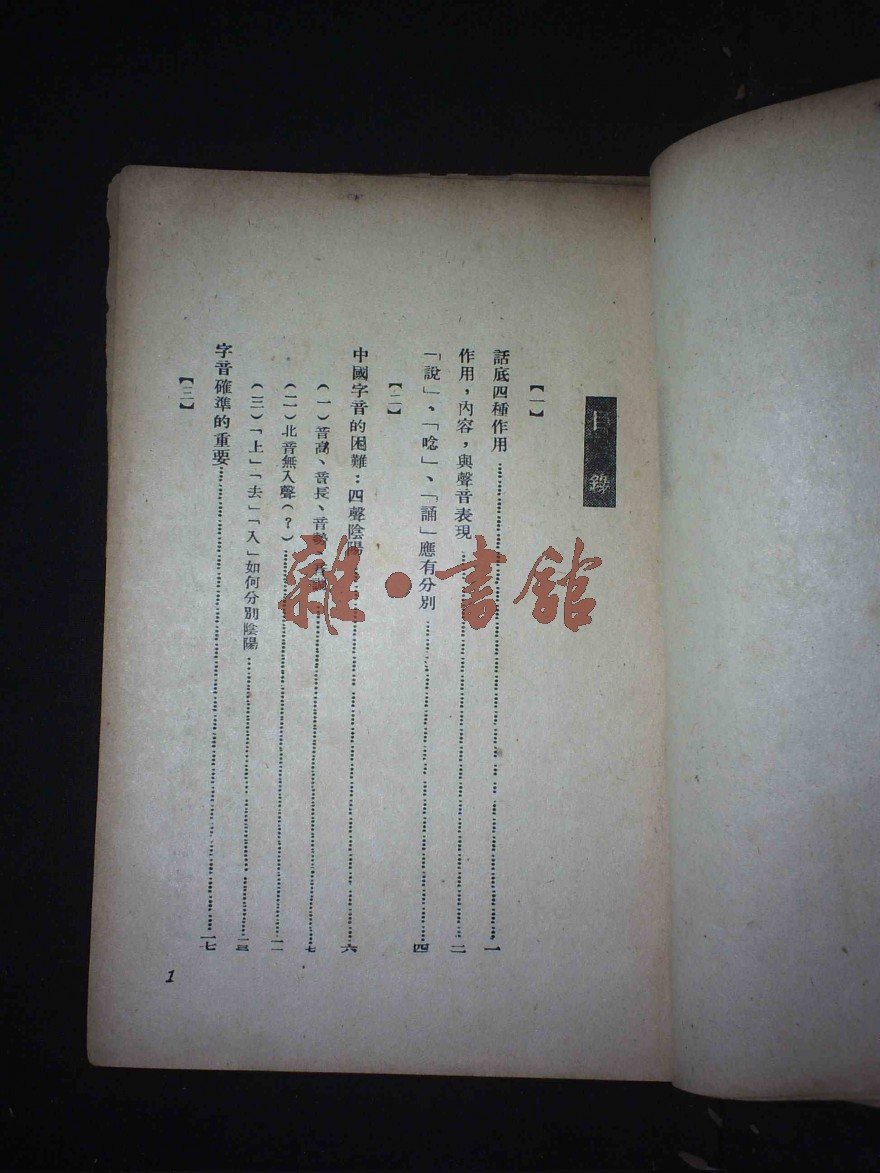 目錄
【一】
話底四種作用……一
作用，內容，與聲音表現……二
「說」、「唸」、「誦」應有分別……四
【二】
中國字音的困難：四聲陰陽……六
（一）音高、音長、音勢、音調……七
（二）北音無入聲（？）……一一
（三）「上」「去」「入」如何分別陰陽……一三
字音確準的重要……一七
【三】
1
雜·書館